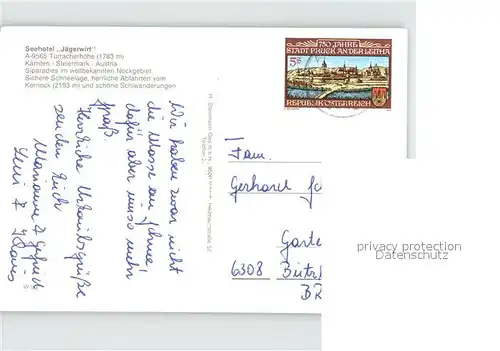 Seehotel „Jägerwirt"
A-9565 Turracherhöhe (1783 m)
Kärnten - Steiermark - Austria
Siparadies im weltbekannten Nockgebiet
Sichere Schneelage, herrliche Abfahrten vom
Kornock (2193 m) und schöne Schiwanderungen
750 JAHRE
STADT BRUCK AN DER LEITHA
5S
REPUBLIK ÖSTERREICH
Wir haben zwar nicht
die Masse an Schnee,
dafür aber umso mehr
Spaß.
Herzliche Urlaubsgrüße
senden Euch
Marianne
Leni + Klaus
Fam.
Gerhard
Garte
6308 Butz
BR
privacy protection
Datenschutz